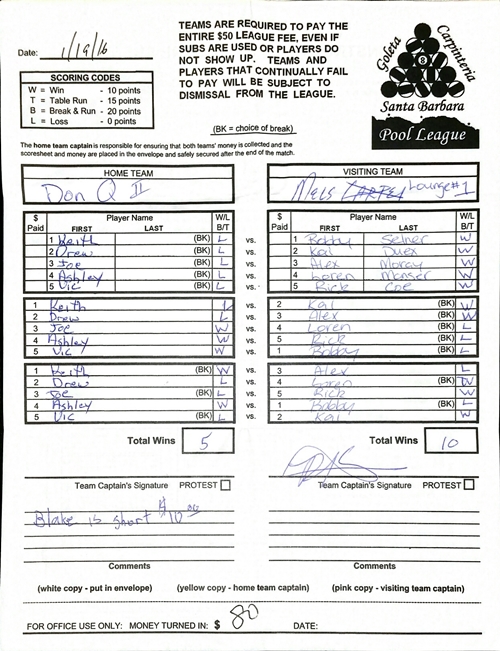 TEAMS ARE REQUIRED TO PAY THE
ENTIRE $50 LEAGUE FEE, EVEN IF
SUBS ARE USED OR PLAYERS DO
NOT SHOW UP. TEAMS AND
PLAYERS THAT CONTINUALLY FAIL
TO PAY WILL BE SUBJECT TO
DISMISSAL FROM THE LEAGUE.
Date: 1/19/16
SCORING CODES
W = Win - 10 points
T = Table Run - 15 points
B = Break & Run - 20 points
L = Loss - 0 points
Goleta
Carpinteria
8
Santa Barbara
Pool League
(BK = choice of break)
The home team captain is responsible for ensuring that both teams' money is collected and the
scoresheet and money are placed in the envelope and safely secured after the end of the match.
HOME TEAM VISITING TEAM
Don Q II Mels Lounge #1
$ Paid Player Name FIRST LAST W/L B/T $ Paid Player Name FIRST LAST W/L B/T
1 Keith (BK) L vs. 1 Bobby Selner W
2 Drew (BK) L vs. 2 Kai Duex W
3 Joe (BK) L vs. 3 Alex Morcy W
4 Ashley (BK) L vs. 4 Loren Monser W
5 Vic (BK) L vs. 5 Rick Coe W
1 Keith L vs. 2 Kai (BK) W
2 Drew L vs. 3 Alex (BK) W
3 Joe W vs. 4 Loren (BK) L
4 Ashley W vs. 5 Rick (BK) L
5 Vic W vs. 1 Bobby (BK) L
1 Keith (BK) W vs. 3 Alex L
2 Drew L vs. 4 Loren (BK) W
3 Joe (BK) L vs. 5 Rick W
4 Ashley W vs. 1 Bobby (BK) L
5 Vic (BK) L vs. 2 Kai W
Total Wins 5 Total Wins 10
Team Captain's Signature PROTEST Team Captain's Signature PROTEST
Blake is short $10.00
Comments Comments
(white copy - put in envelope) (yellow copy - home team captain) (pink copy - visiting team captain)
FOR OFFICE USE ONLY: MONEY TURNED IN: $ 80 DATE: